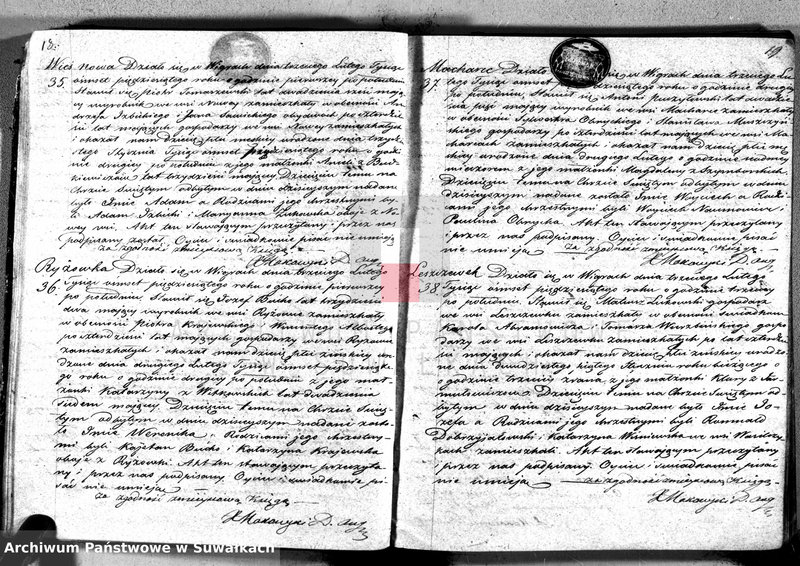 18.
Wieś nowa Działo się w Wigrach dnia trzeciego Lutego Tysiąc
35. ośmset pięćdziesiątego roku o godzinie pierwszey po południu
Stawił się Piotr Tomaszewski lat dwadzieścia mają
cy wyrobnik we wsi Nowey zamieszkały w obecności An
drzeja Izbickiego i Jana Sawickiego obydwóch po czterdzie
ści lat mających gospodarzy we wsi Nowey zamieszkałych
i okazał nam Dziecię płci męskiey urodzone dnia
Stycznia Tysiąc ośmset pięćdziesiątego roku o godzi
nie drugiey po południu z jego małżonki Anieli z
lat trzydzieści mającey. Dziecięciu temu na
Chrzcie Świętym odbytym w dniu dzisiejszym nadane
było Imie Adam a Rodzicami jego chrzestnymi by
li Adam Izbicki i Maryanna Żukowska oboje z No
wey wsi. Akt ten stawającym przeczytany i przez nas
podpisany został. Oyciec i świadkowie pisać nie umieją
za zgodność Księgą
X Makowski D. Aug
Ryżówka Działo się w Wigrach dnia trzeciego Lutego
36. Tysiąc ośmset pięćdziesiątego roku o godzinie pierwszey
po południu Stawił się Jozef Bućko lat trzydzieści
dwa mający wyrobnik we wsi Ryżowce zamieszkały
w obecności Piotra Krajewskiego Wincentego
po czterdzieści lat mających gospodarzy we wsi Ryżowce
zamieszkałych i okazał nam Dziecię płci żeńskiey uro
dzone dnia drugiego Lutego Tysiąc ośmset pięćdziesiąte
go roku o godzinie drugiey po południu z jego mał
żonki Katarzyny z lat dwadzieścia
mającey Dziecięciu temu na Chrzcie Świę
tym odbytym w dniu dzisiejszym nadane zosta
ło Imie Weronika. Rodzicami jego chrzestny
mi byli Kajetan Bućko i Katarzyna Krajewska
oboje z Ryżowki. Akt ten stawającym przeczyta
ny i przez nas podpisany Oyciec i świadkowie pi
sać nie umieją
za zgodność Księgą
X Makowski D. Aug
19
Macharce Działo się w Wigrach dnia trzeciego Lu
37. tego Tysiąc ośmset pięćdziesiątego roku o godzinie drugiey
po południu, Stawił się Antoni lat dwadzie
ścia pięć mający wyrobnik we wsi Macharce zamieszkały
w obecności Sylwestra Chmyckiego i Stanisława
skiego gospodarzy po czterdzieści lat mających we wsi Ma
charcach zamieszkałych i okazał nam Dziecię płci mę
skiey urodzone dnia drugiego Lutego o godzinie
wieczorem z jego małżonki Magdaleny z Szymborskich
Dziecięciu temu na Chrzcie Świętym odbytym w dniu
dzisiejszym nadane zostało Imie Woyciech a Rodzi
cami jego chrzestnymi byli Woyciech
Paulina Akt ten Stawającym przeczytany
i przez nas podpisany. Oyciec i świadkowie pisać
nie umieją za zgodność Księgą
X Makowski D. Aug
Leszczewek Działo się w Wigrach dnia trzeciego Lutego
38. Tysiąc ośmset pięćdziesiątego roku o godzinie pierwszey
po południu, Stawił się Mateusz gospodarz
we wsi Leszczewku zamieszkały w obecności świadków
Karola Abramowicza i Tomasza gospo
darzy we wsi Leszczewku zamieszkałych po lat czterdzie
ści mających i okazał nam Dziecię płci żeńskiey urodzo
ne dnia Stycznia roku bieżącego
o godzinie trzeciey zrana, z jego małżonki Klary z
Dziecięciu temu na Chrzcie Świętym od
bytym w dniu dzisiejszym nadane było Imie Jo
zefa a Rodzicami jego chrzestnymi byli Romuald
i Katarzyna we wsi
zamieszkali. Akt ten Stawającym przeczytany
i przez nas podpisany Oyciec i świadkowie pisać
nie umieją za zgodność Księgą
X Makowski D. Aug
Archiwum Państwowe w Suwałkach